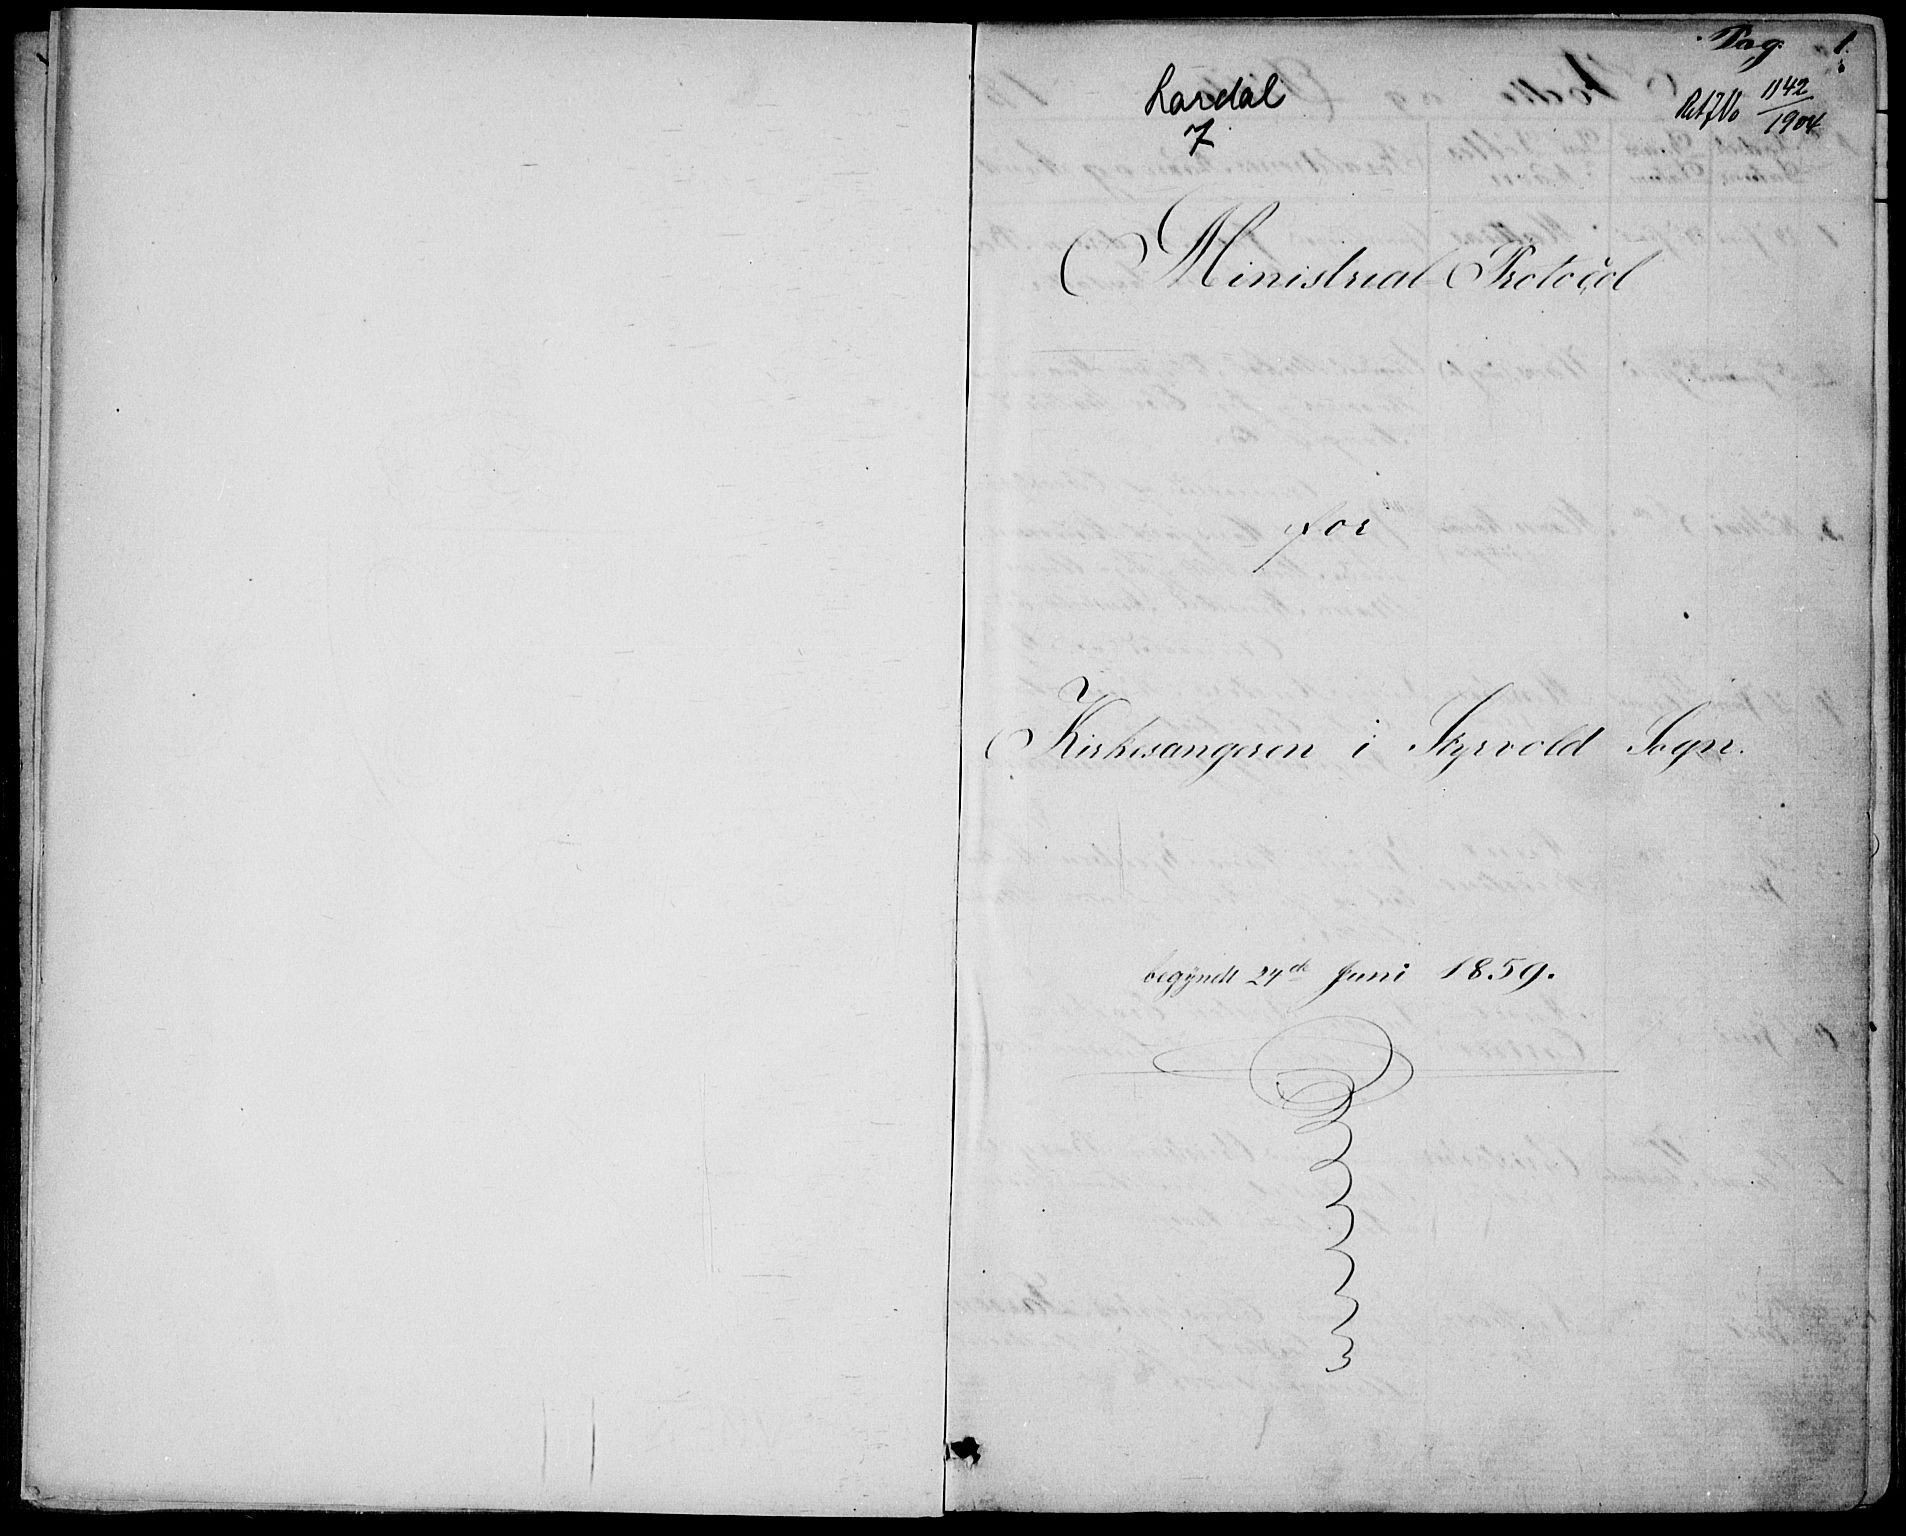 Pag. 1.
Lardal
7
1142
1904
Ministrial Protocol
for
Kirkesangeren i Styrvold Sogn.
begyndt 24de Juni 1859.